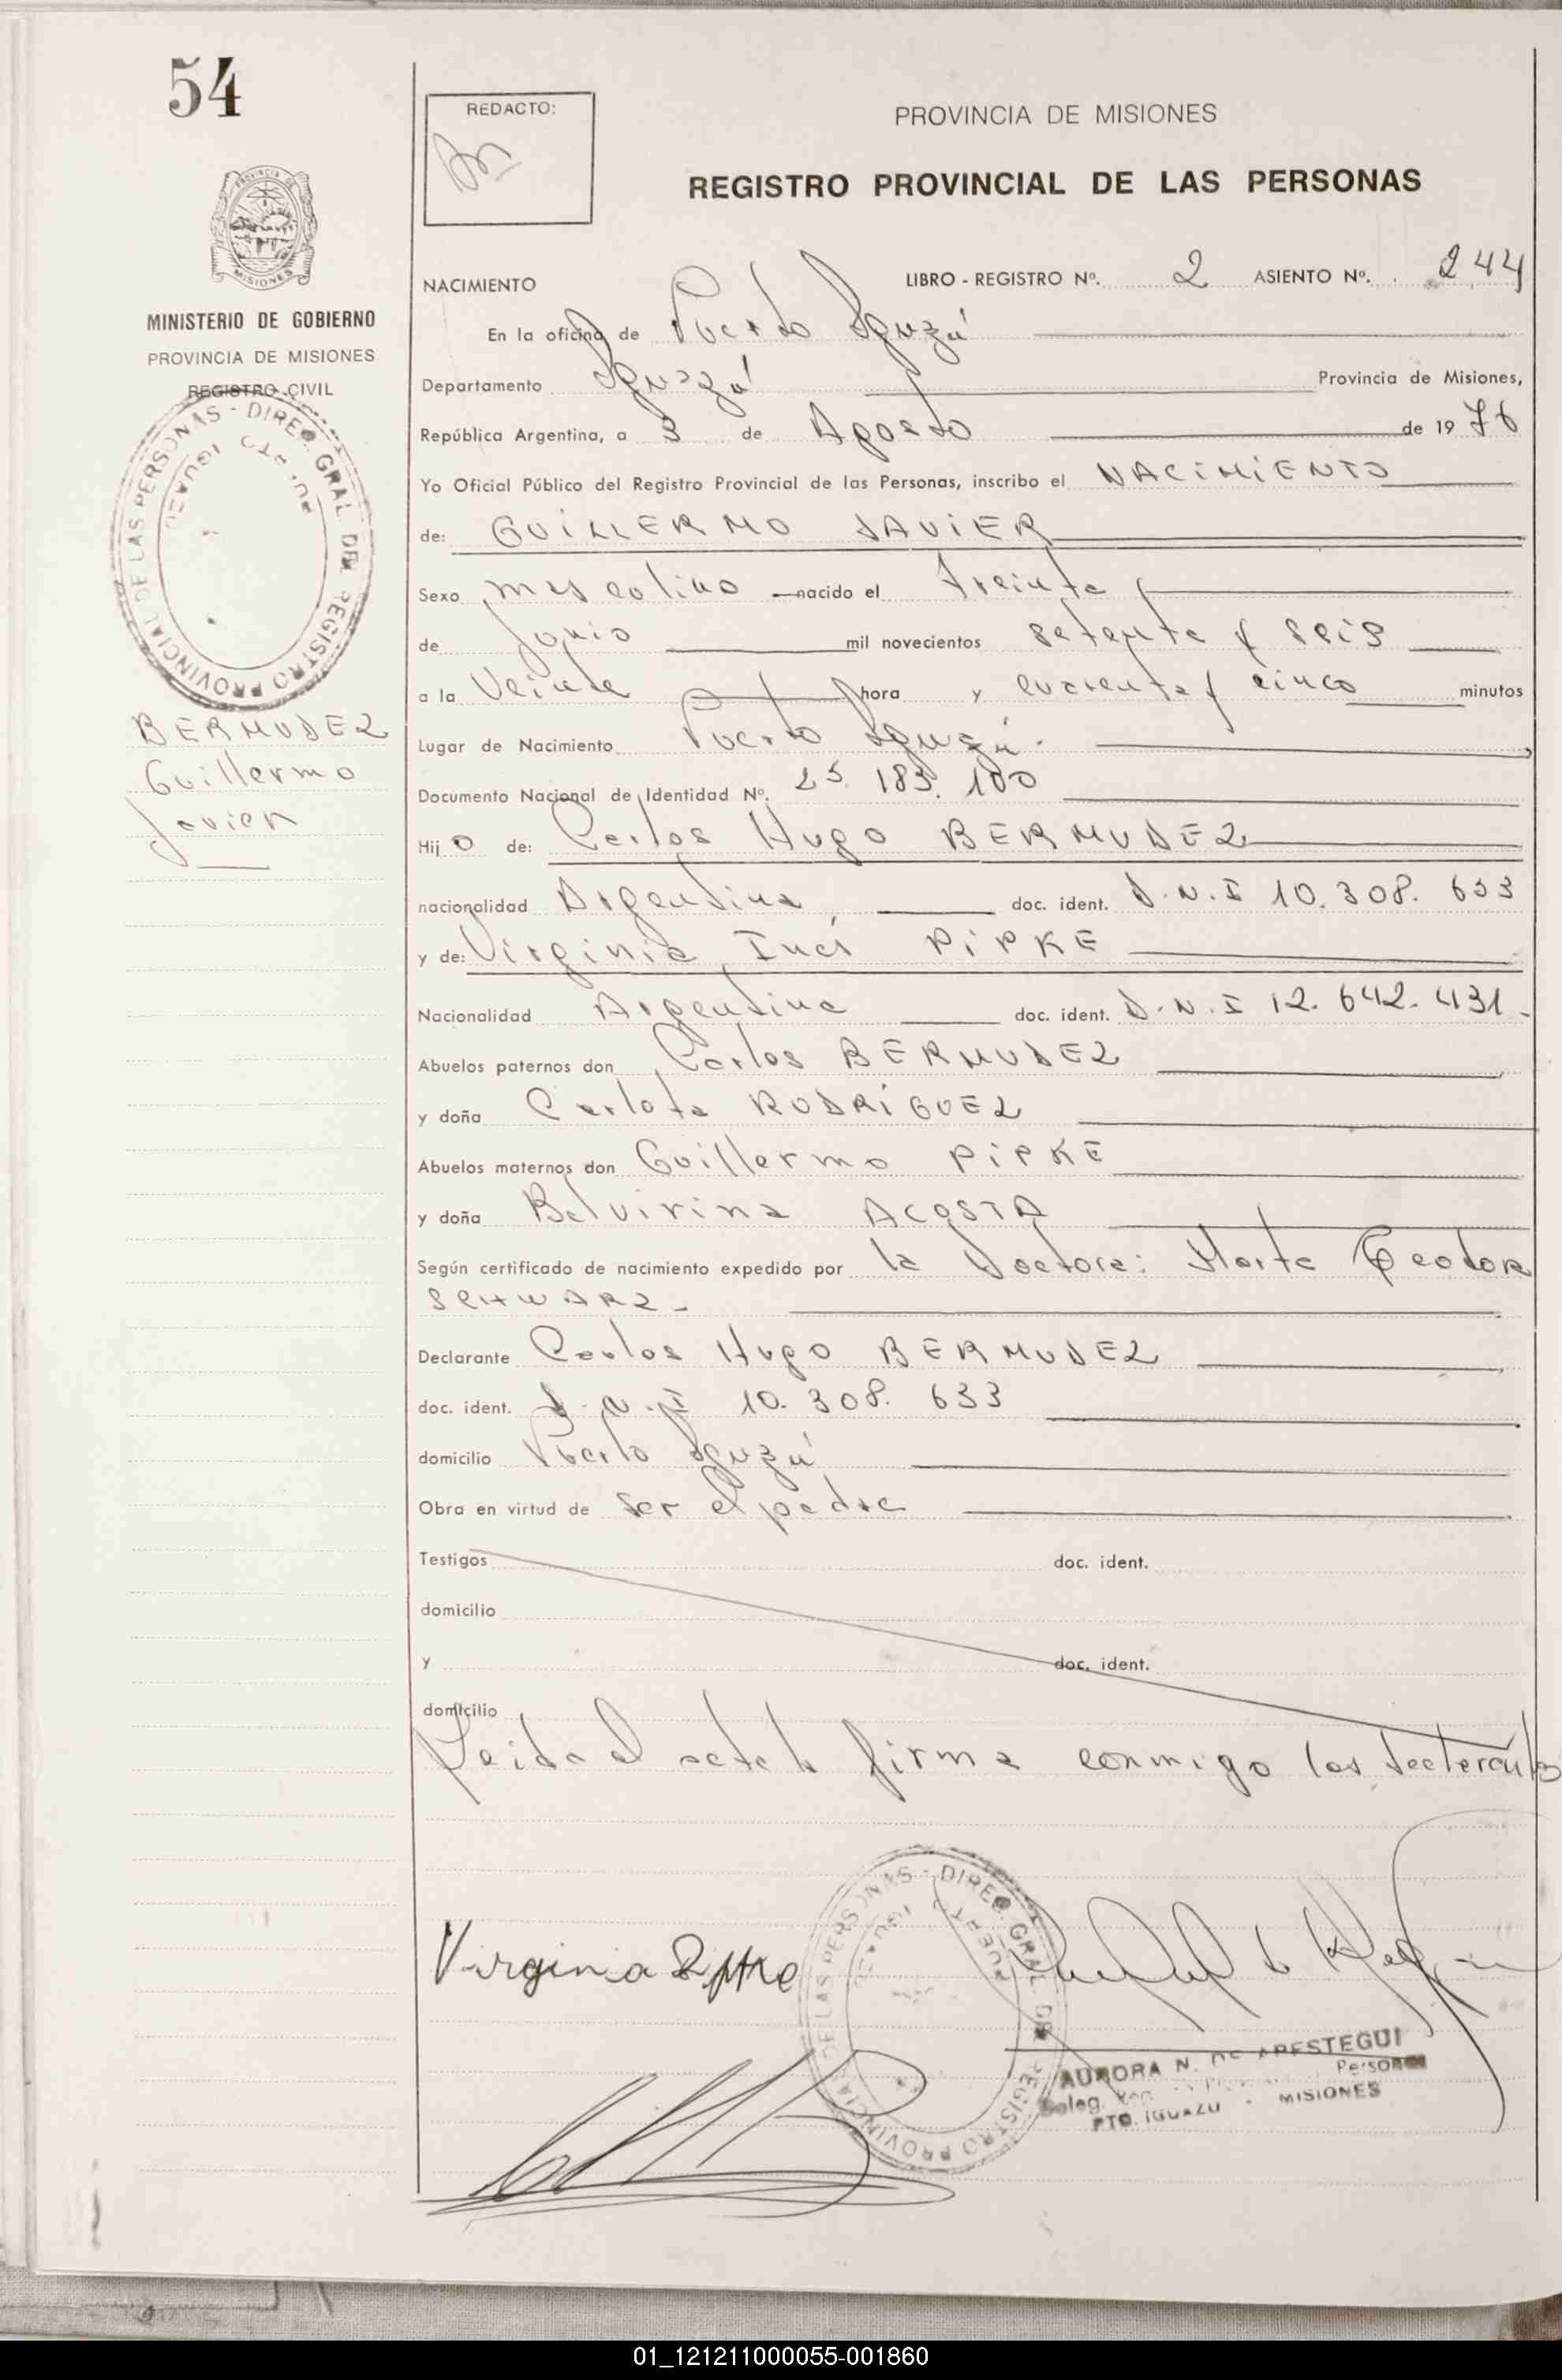 54
REDACTO:
PROVINCIA DE MISIONES
REGISTRO PROVINCIAL DE LAS PERSONAS
PROVINCIA DE
MISIONES
MINISTERIO DE GOBIERNO
PROVINCIA DE MISIONES
REGISTRO CIVIL
DIREC. GRAL. DEL REGISTRO PROVINCIAL DE LAS PERSONAS -
PUERTO IGUAZU
BERMUDEZ
Guillermo
Javier
NACIMIENTO LIBRO - REGISTRO Nº. 2 ASIENTO Nº. 244
En la oficina de Puerto Iguazú
Departamento Iguazú Provincia de Misiones,
República Argentina, a 3 de Agosto de 1976
Yo Oficial Público del Registro Provincial de las Personas, inscribo el NACIMIENTO
de: GUILLERMO JAVIER
Sexo masculino nacido el treinta
de Junio mil novecientos setenta y seis
a la Veinte hora y cuarenta y cinco minutos
Lugar de Nacimiento Puerto Iguazú.
Documento Nacional de Identidad Nº. 25.183.100
Hijo de: Carlos Hugo BERMUDEZ
nacionalidad Argentina, doc. ident. D.N.I 10.308.633
y de: Virginia Inés PIPKE
Nacionalidad Argentina doc. ident. D.N.I 12.642.431.
Abuelos paternos don Carlos BERMUDEZ
y doña Carlota RODRIGUEZ
Abuelos maternos don Guillermo PIPKE
y doña Belvirina ACOSTA
Según certificado de nacimiento expedido por la Doctora: Marta Teodora
SCHWARZ-
Declarante Carlos Hugo BERMUDEZ
doc. ident. D.N.I 10.308.633
domicilio Puerto Iguazú
Obra en virtud de ser el padre
Testigos doc. ident.
domicilio
y doc. ident.
domicilio
Leida el acta la firma conmigo los declarantes
Virginia Pipke
DIREC. GRAL. DEL REGISTRO PROVINCIAL DE LAS PERSONAS -
PUERTO IGUAZU
AURORA N. DE ARESTEGUI
Deleg. Reg. Personas
PTO. IGUAZU - MISIONES
01_121211000055-001860